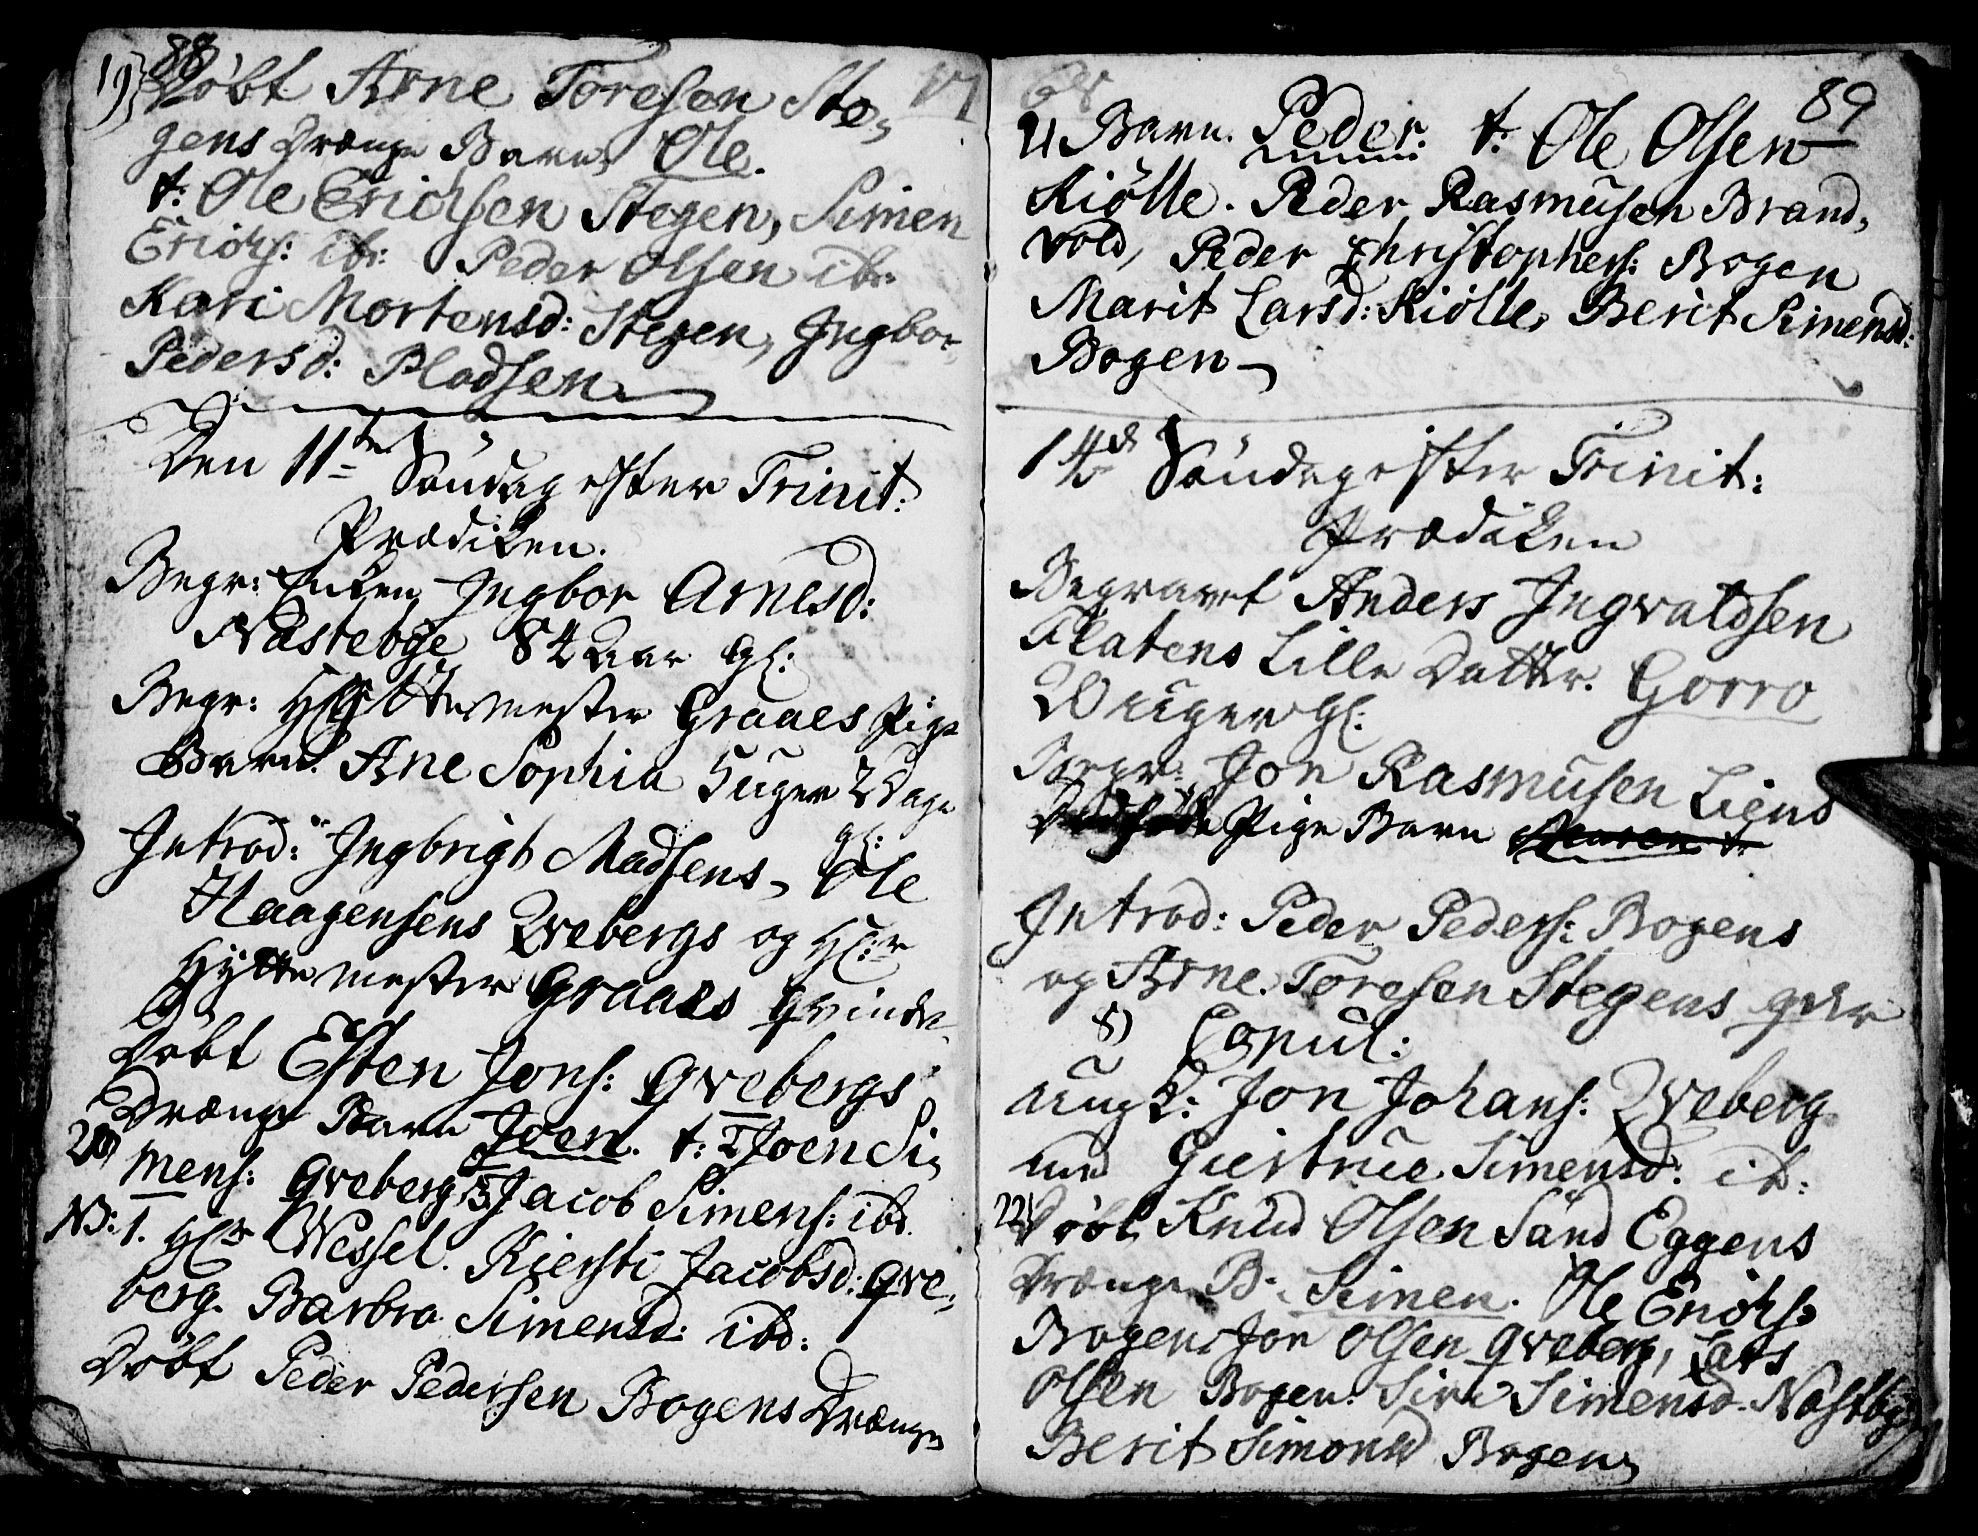 88
19) Döbt Arne Toresen Ste,
gens Drænge Barn, Ole.
t: Ole Erichsen Stegen, Simen
Erichs: ibr: Peder Olsen ibr:
Kari Mortensd: Stegen, Ingbor
Pedersd: Pladsen
Den 11te Söndag efter Trinit:
Prædiken.
Begr: Enken Ingbor Arnesd:
Nästebye 84 Aar gl:
Begr: Hr Hÿttemester Graaes Pige
Barn. Ane Sophia 5 uger 2 Dage
gl:
Introd: Ingbrigt Madsens, Ole
Haagensens Qvebergs og Hr:
Hÿttemester Graaes Qvinder
Döbt Esten Jons: Qvebergs
20) Drænge Barn Joen. t: Joen Si,
mens: Qveberg Jacob Simens: ibd.
NB: 1. Hr Wessel. Kiersti Jacobsd: Qve,
berg. Barbro Simensd: ibd:
Döbt Peder Pedersen Bogens Drænge
89
21 Barn. Peder. t: Ole Olsen
Kiölle. Peder Rasmusen Brand,
vold, Peder Christophers: Bogen
Marit Larsd: Kiölle, Berit Simensd:
Bogen
14de Söndag efter Trinit:
Prædiken
Begravet Anders Ingvaldsen
Flatens Lille Datter. Gorro
20 uger gl:
Begr: Jon Rasmusen Liens
Pige Barn
Introd: Peder Peders: Bogens
og Arne Toresen Stegens qvr
8) Copul:
ungk: Jon Johans: Qveberg
med Giertrue Simensd: ib:
22) Döbt Knud Olsen Sand Eggens
Drænge B. Simen. Ole Erichs:
Bogen Jon Olsen Qveberg, Lars
Olsen Bogen. Siri Simensd. Nästbye
Berit Simonsd Bogen